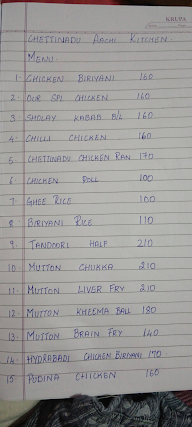 CHETTINADU AACHI KITCHEN
MENU.
1. CHICKEN BIRIYANI 160
2. OUR SPL CHICKEN 160
3. SHOLAY KABAB B/L 160
4. CHILLI CHICKEN 160
5. CHETTINADU CHICKEN RAN 170
6. CHICKEN ROLL 100
7. GHEE RICE 100
8. BIRIYANI RICE 110
9. TANDOORI HALF 210
10. MUTTON CHUKKA 210
11. MUTTON LIVER FRY 210
12. MUTTON KHEEMA BALL 180
13. MUTTON BRAIN FRY 140
14. HYDRABADI CHICKEN BIRIYANI 170
15. PUDINA CHICKEN 160